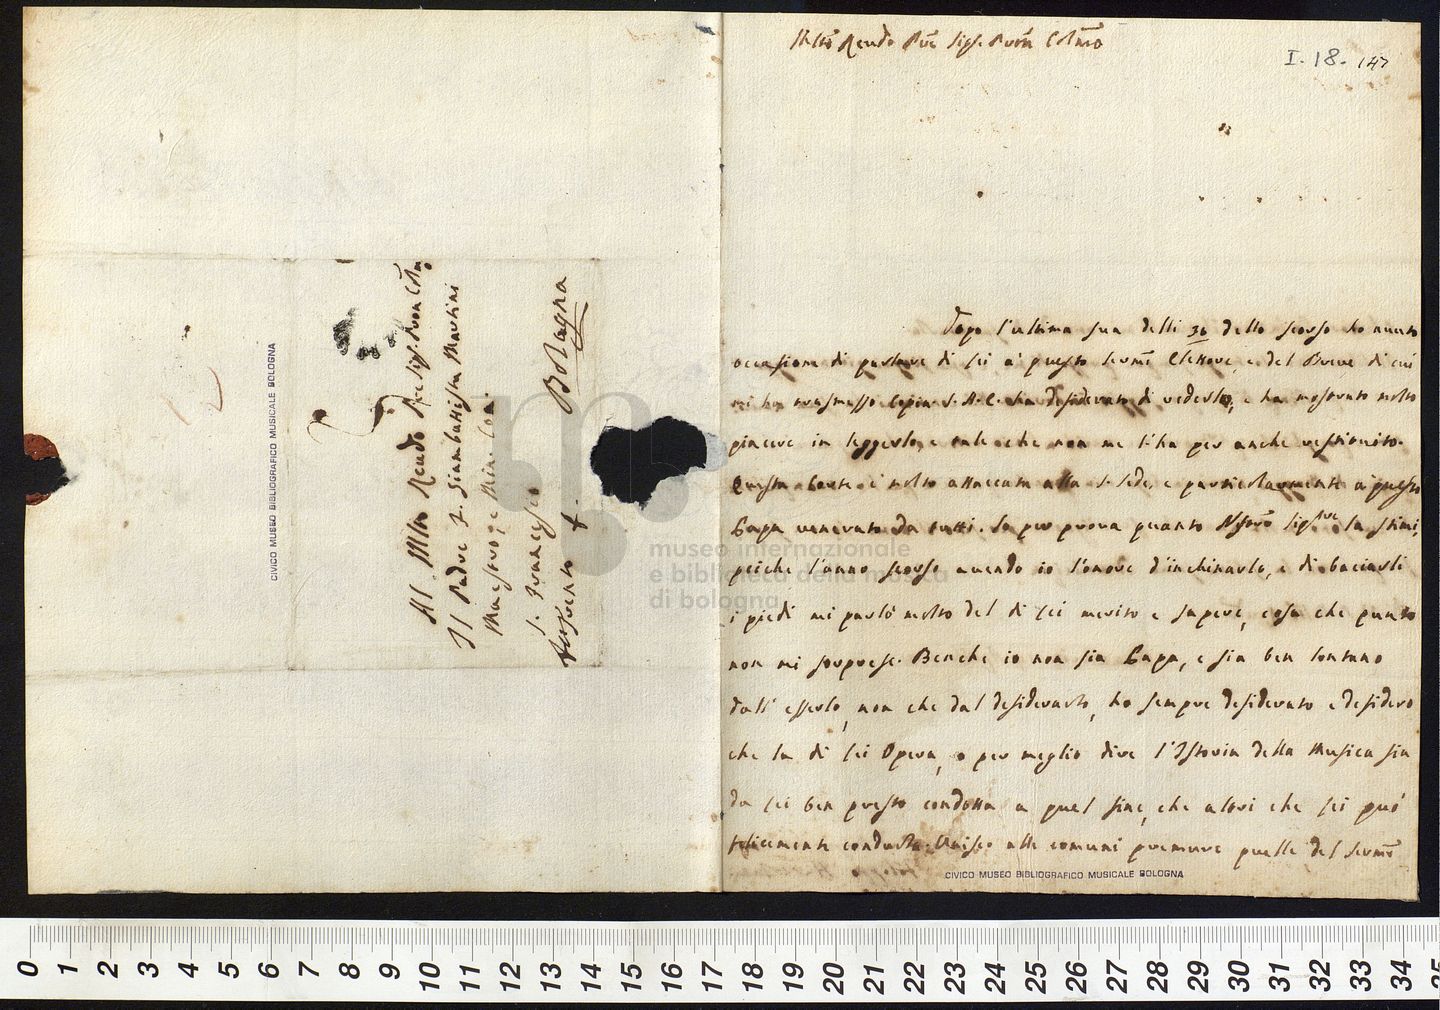 Al Mto Rendo Pre Sigr. Pron Colmo
Il Padre F. Giambattista Martini
Maestro de Min. Con.
S. Francesco
Bologna
CIVICO MUSEO BIBLIOGRAFICO MUSICALE BOLOGNA
Mlto Rendo Pre Sigr. Pron Colmo
I. 18. 147
Dopo l'ultima sua delli 30 dello scorso ho avuto
occasione di parlare di Lei a questo Sermo Elettore, e del Breve di cui
mi ha trasmesso Copia. S. A. E. ha desiderato di vederlo, e ha mostrato molto
piacere in leggerlo, e tale che non me l'ha per anche restituito.
Questa Corte è molto attaccata alla S. Sede, e particolarmente a questo
Papa venerato da tutti. So per prova quanto Nostro Sigre la stimi,
poiche l'anno scorso avendo io l'onore d'inchinarlo, e di baciarli
i piedi mi parlò molto del di Lei merito e sapere, cosa che punto
non mi sorprese. Benche io non sia Papa, e sia ben lontano
dall'esserlo, non che dal desiderarlo, ho sempre desiderato e desidero
che la di Lei Opera, o per meglio dire l'Istoria della Musica sia
da Lei ben presto condotta a quel fine, che altri che Lei può
felicemente condurla. Unisco alle comuni premure quelle del Sermo
CIVICO MUSEO BIBLIOGRAFICO MUSICALE BOLOGNA
museo internazionale
e biblioteca della musica
di bologna
0 1 2 3 4 5 6 7 8 9 10 11 12 13 14 15 16 17 18 19 20 21 22 23 24 25 26 27 28 29 30 31 32 33 34 35